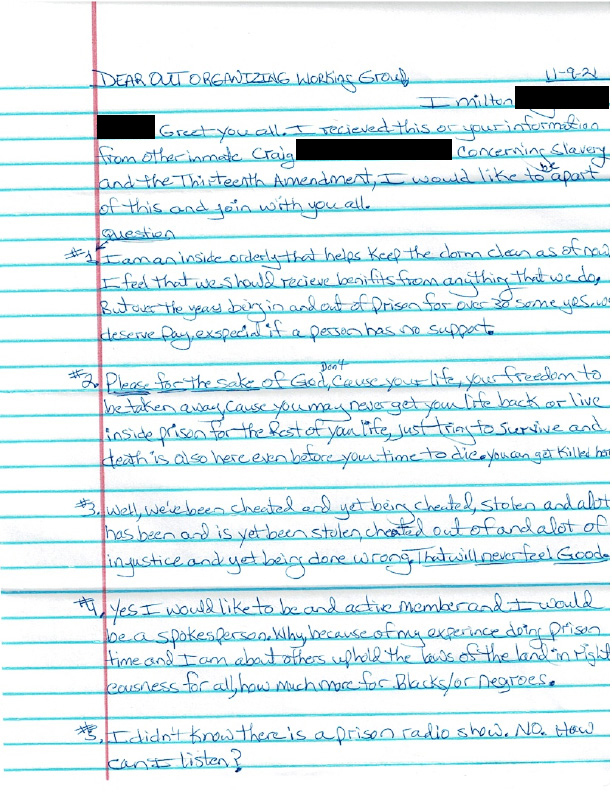 DEAR OUT ORGANIZING Working Group 11-9-21
I milton
Greet you all. I recieved this or your information
from other inmate Craig concerning slavery
and the Thirteenth Amendment, I would like to be apart
of this and join with you all.
Question
#1. I am an inside orderly that helps keep the dorm clean as of now
I feel that we should recieve benifits from anything that we do,
But over the years being in and out of prison for over 30 some yes, we
deserve pay, exspecial if a person has no support.
#2. Please for the sake of God, Don't cause your life, your freedom to
be taken away, cause you may never get your life back or live
inside prison for the Rest of your life, just trying to survive and
death is also here even before your time to die. you can get killed her
#3. Well, we've been cheated and yet being cheated, stolen and alot
has been and is yet been stolen, cheated out of and alot of
injustice and yet being done wrong. That will never feel Good.
#4. Yes I would like to be and active member and I would
be a spokesperson. Why, because of my experince doing prison
time and I am about others uphold the laws of the land in right
eousness for all, how much more for Blacks/or Negroes.
#5. I didn't know there is a prison radio show. NO. How
can I listen?